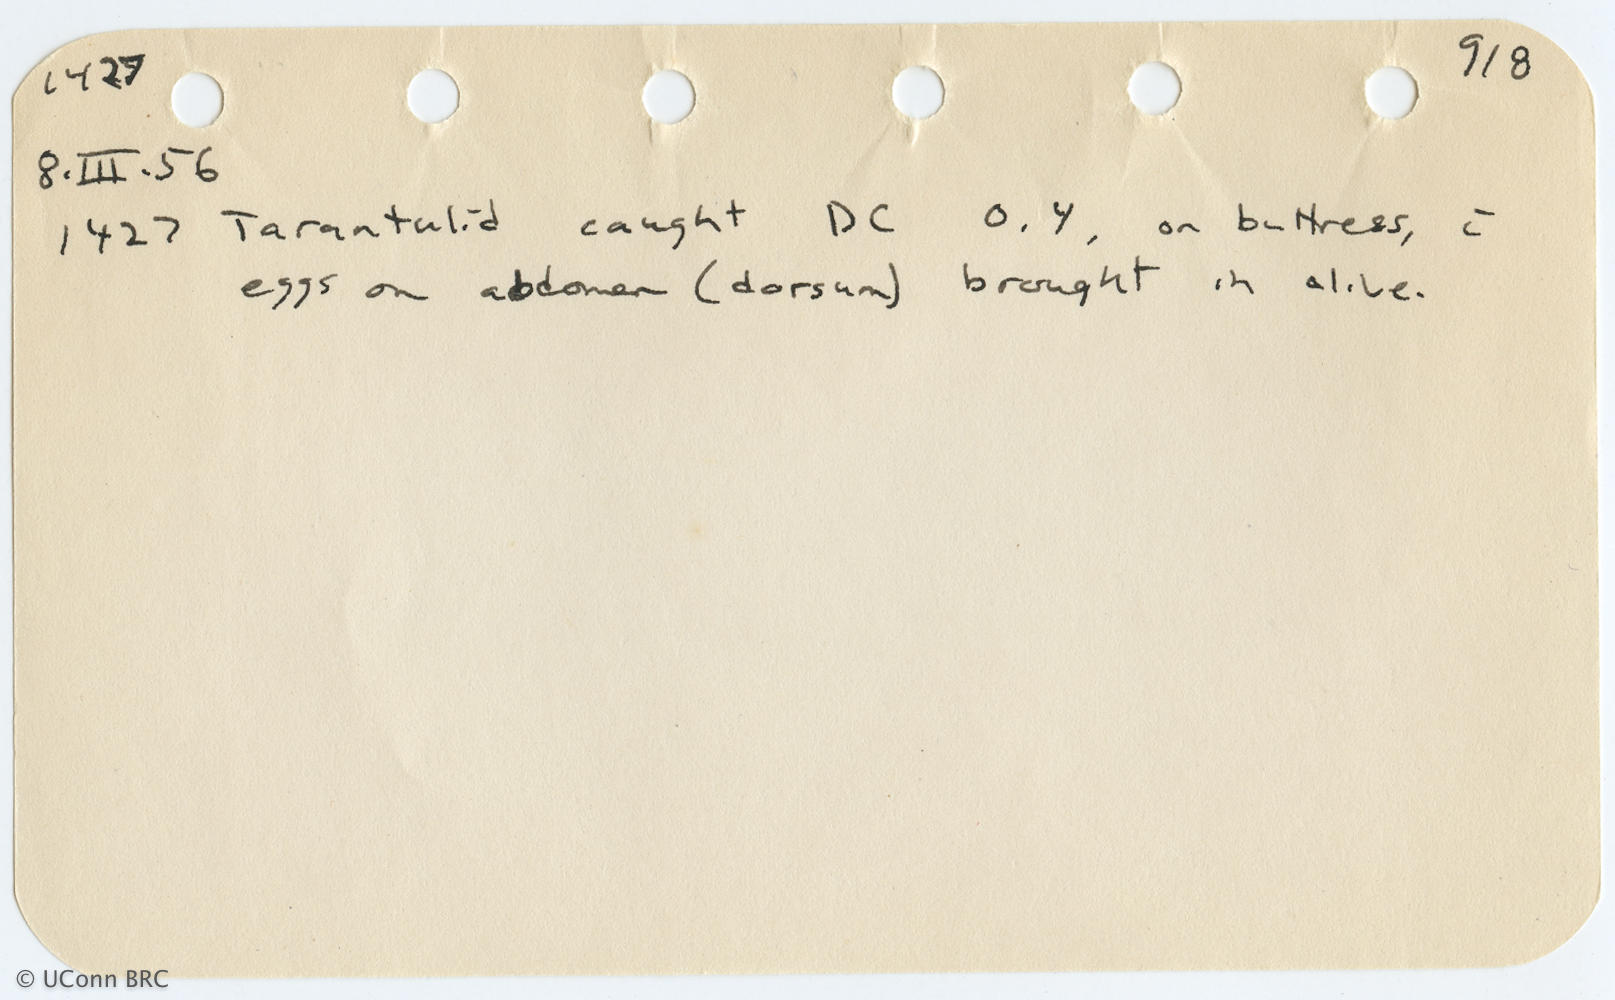 1427 918
8.III.56
1427 Tarantulid caught DC 0.4, on buttress, c̄
eggs on abdomen (dorsum) brought in alive.
© UConn BRC